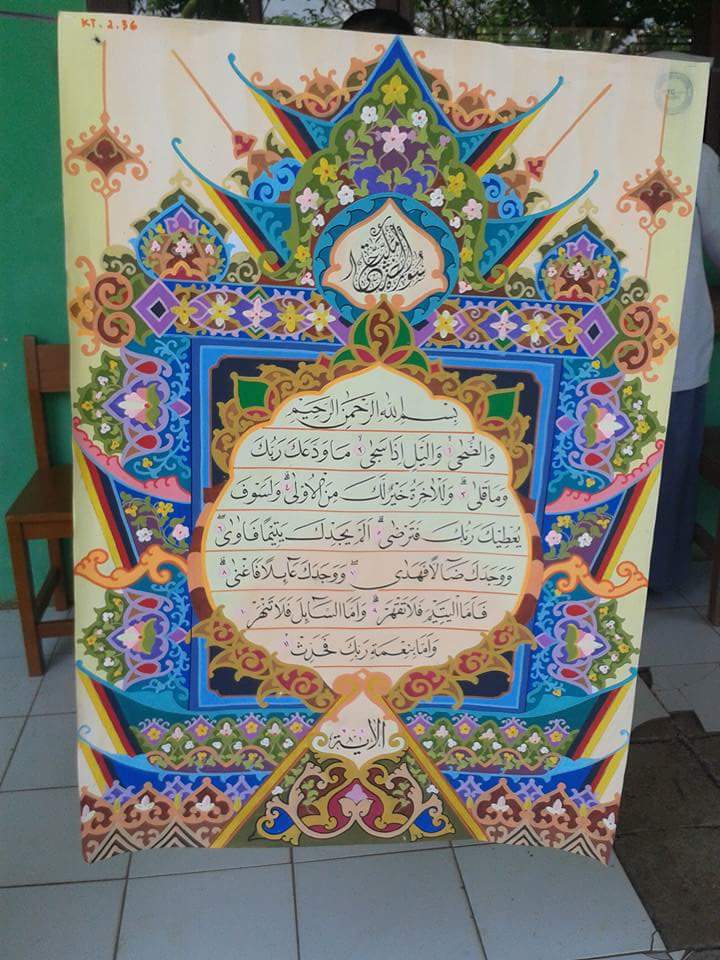 KT. 2.36
بسم الله الرحمن الرحيم
والضحى ١ واليل اذا سجى ٢ ما ودعك ربك
وما قلى ٣ وللاخرة خير لك من الاولى ٤ ولسوف
يعطيك ربك فترضى ٥ الم يجدك يتيما فاوى ٦
ووجدك ضآلا فهدى ٧ ووجدك عآئلا فاغنى ٨
فاما اليتيم فلا تقهر ٩ واما السآئل فلا تنهر ١٠
واما بنعمة ربك فحدث ١١
الاية